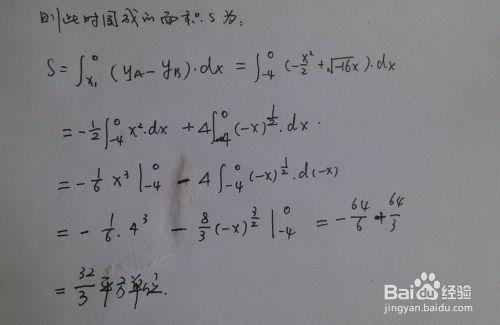 则此时围成的面积S为:
S = ∫_{x₁}^{0} (y_A − y_B)·dx = ∫_{-4}^{0} (−x²/2 + √(-16x))·dx
= −1/2 ∫_{-4}^{0} x²·dx + 4∫_{-4}^{0} (−x)^{1/2}·dx.
= −1/6 x³ |_{-4}^{0} − 4∫_{-4}^{0} (−x)^{1/2}·d(−x)
= −1/6·4³ − 8/3 (−x)^{3/2} |_{-4}^{0} = −64/6 + 64/3
= 32/3 平方单位.
Baidu经验
jingyan.baidu.com